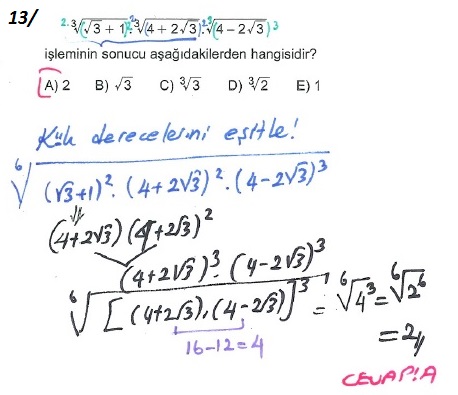 13/
2.3√(√3 + 1)2 . 2.3√(4 + 2√3)2 . 2√(4 – 2√3)3
işleminin sonucu aşağıdakilerden hangisidir?
A) 2 B) √3 C) ³√3 D) ³√2 E) 1
Kök derecelesini eşitle!
⁶√(√3+1)². (4+2√3)². (4-2√3)³
(4+2√3) (4+2√3)²
(4+2√3)³. (4-2√3)³
⁶√[(4+2√3).(4-2√3)]³ = ⁶√4³ = ⁶√2⁶
= 2//
16-12=4
CEVAP!A